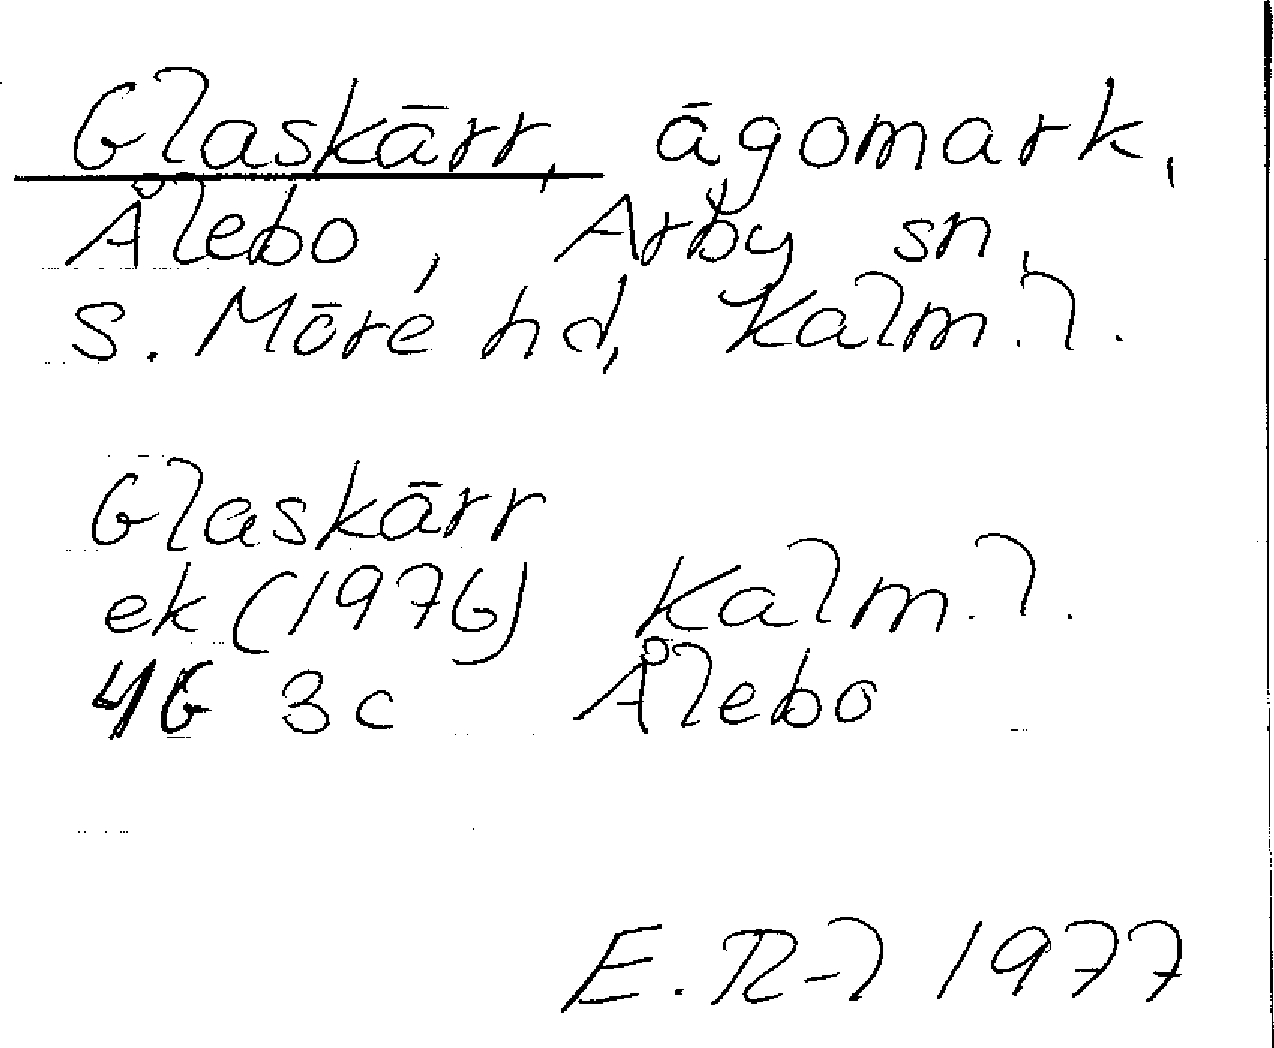 Glaskärr, ägomark,
Ålebo, Arby sn,
S. Möre hd, Kalm. l.
Glaskärr
ek (1976) Kalm. l.
4G 3c Ålebo
E. R-l 1977